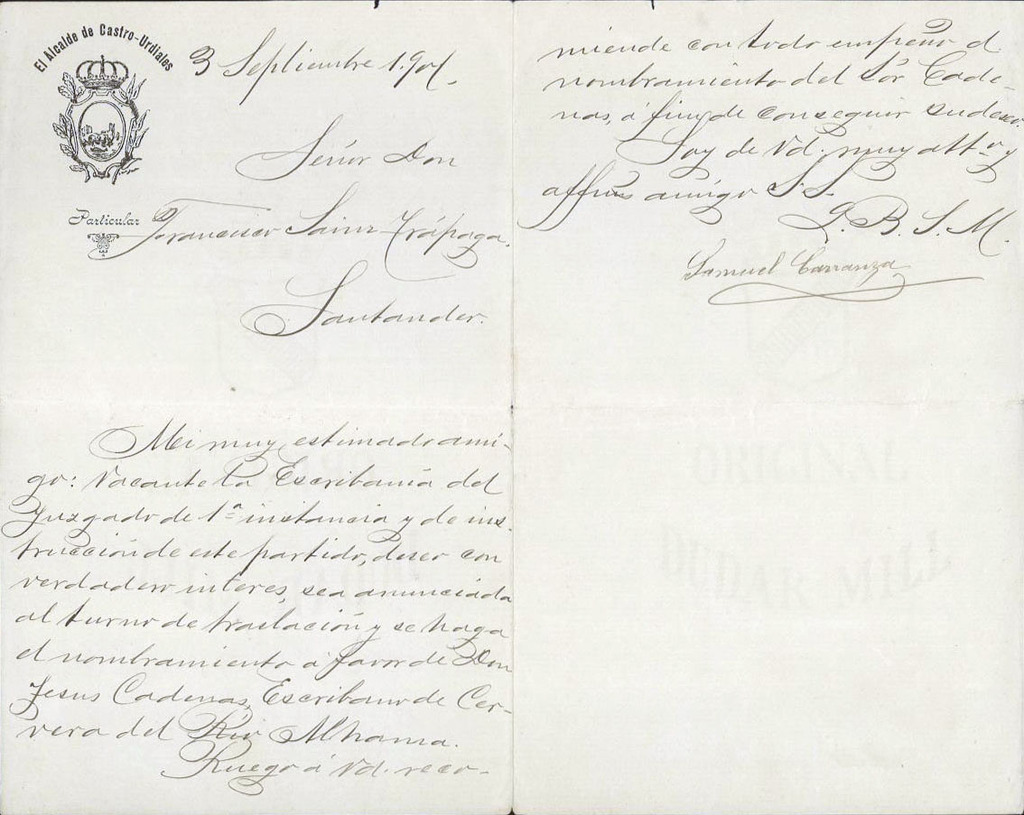 El Alcalde de Castro-Urdiales
3 Septiembre 1.901.
Señor Don
Particular
Francisco Sainz-Trápaga.
Santander.
Mi muy estimado ami-
go: Vacante la Escribanía del
Juzgado de 1ª instancia y de ins-
trucción de este partido, deseo con
verdadero interes, sea anunciada
al turno de traslación y se haga
el nombramiento á favor de Don
Jesus Cadenas, Escribano de Cer-
vera del Río Alhama.
Ruego á Vd. reco-
miende con todo empeño el
nombramiento del Sor Cade-
nas, á fin de conseguir su deseo.
Soy de Vd. muy attº y
affmo amigo S.S.
Q.B.S.M.
Samuel Carranza
ORIGINAL
DUNBAR MILL